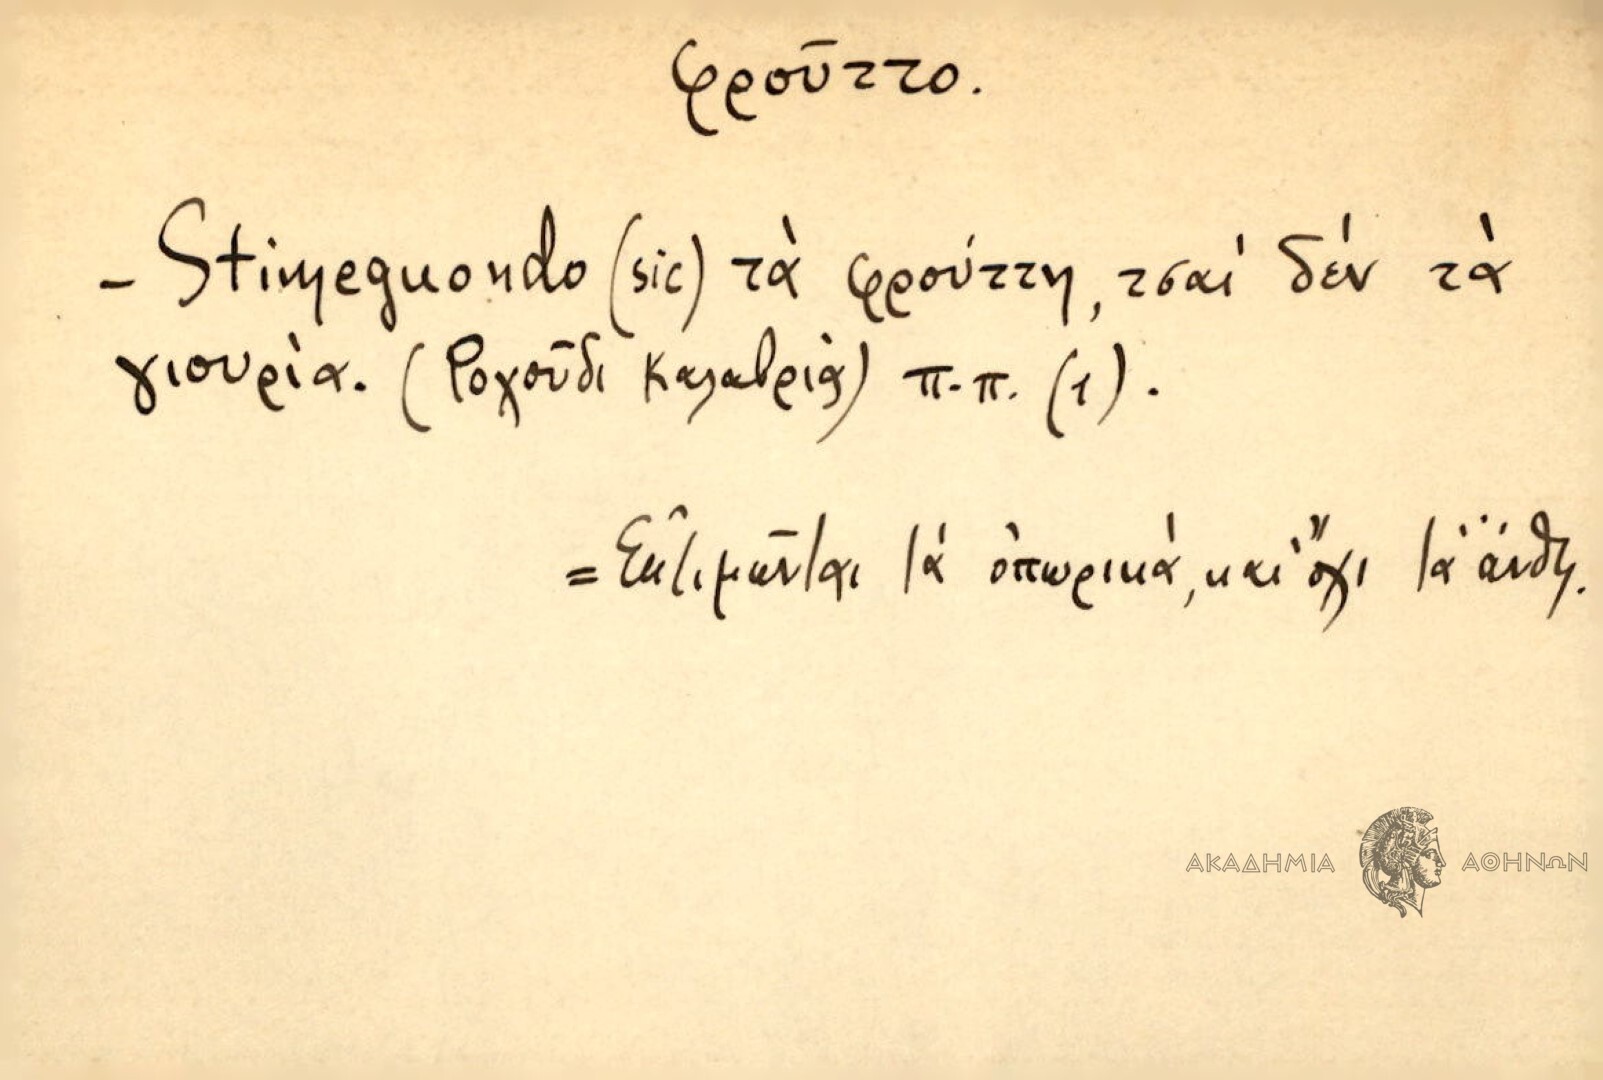 φροῦττο.
– Stimeguondo (sic) τὰ φρούττη, τσαί δέν τὰ
γιουρὶα. (Ροχοῦδι Καλαβρὶα) π.π. (1).
= Ἐκτιμῶνται τά ὀπωρικὰ, καὶ ὄχι τὰ ἄνθη.
ΑΚΑΔΗΜΙΑ ΑΘΗΝΩΝ